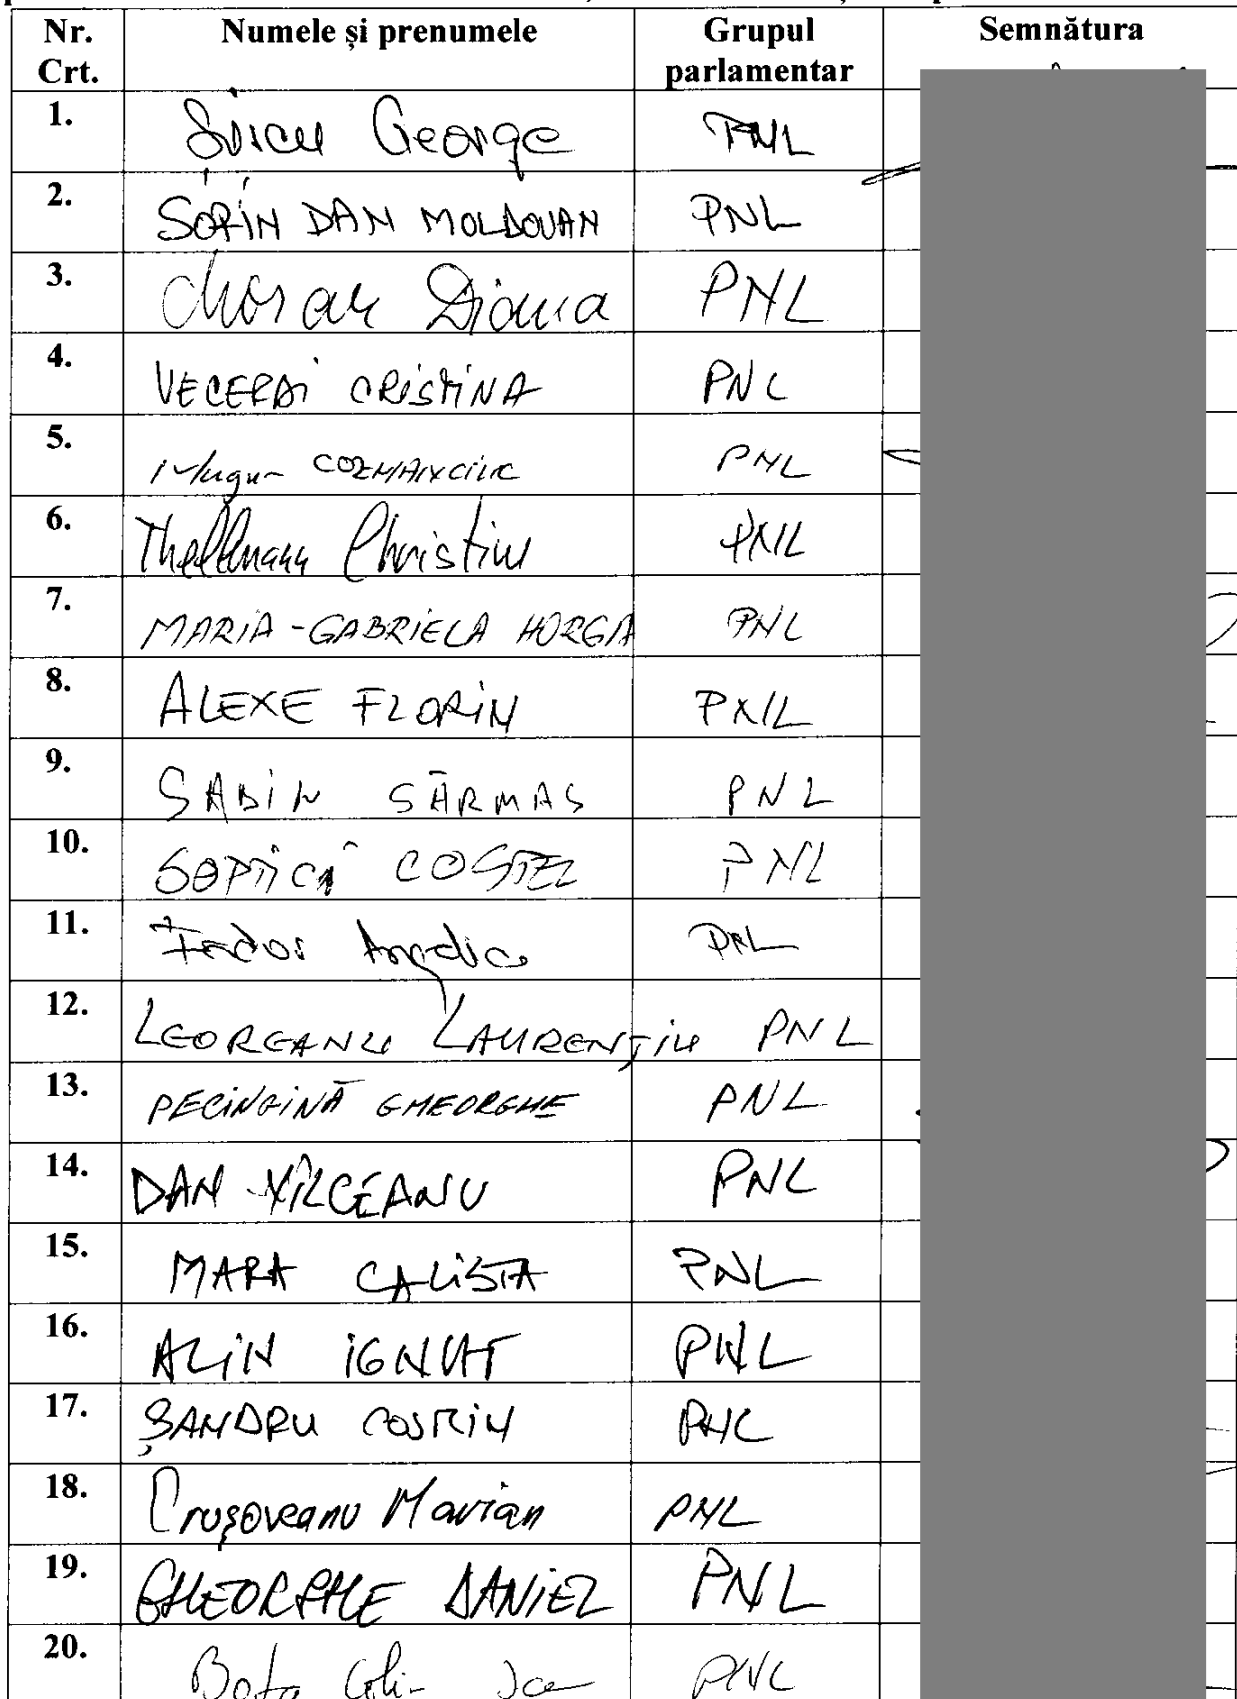 Nr. Crt. Numele și prenumele Grupul parlamentar Semnătura
1. George PNL
2. SORIN DAN MOLDOVAN PNL
3. Morar Diana PNL
4. VECERDI CRISTINA PNL
5. Mugur COZMANCIUC PNL
6. Thellmann Christine PNL
7. MARIA-GABRIELA HORGA PNL
8. ALEXE FLORIN PNL
9. SABIN SĂRMAȘ PNL
10. ȘOPTICĂ COSTEL PNL
11. Fădor Angelica PNL
12. LEOREANU LAURENȚIU PNL
13. PECINGINĂ GHEORGHE PNL
14. DAN VÎLCEANU PNL
15. MARA CALISTA PNL
16. ALIN IGNAT PNL
17. ȘANDRU COSMIN PNL
18. Crușoveanu Marian PNL
19. GHEORGHE DANIEL PNL
20. Bota PNL